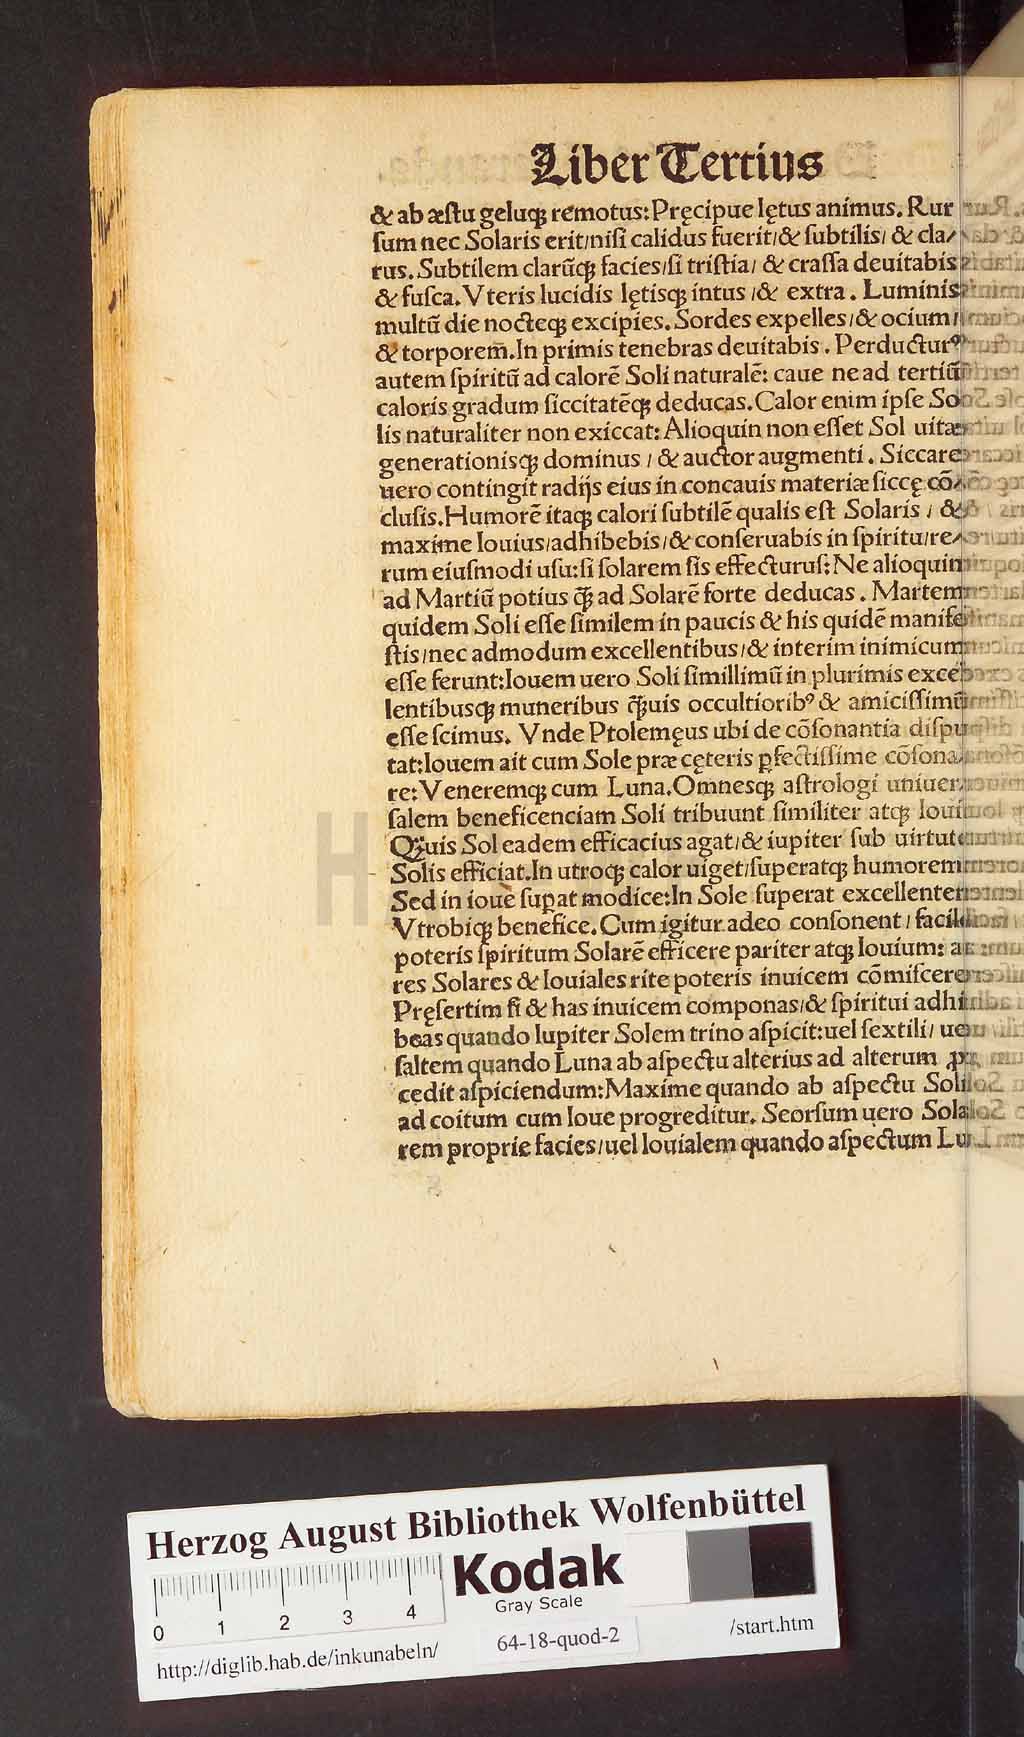 Liber Tertius
& ab æſtu geluqꝫ remotus: Pręcipue lętus animus. Rur
ſum nec Solaris erit/niſi calidus fuerit/& ſubtilis/ & cla/
rus. Subtilem clarūqꝫ facies/ſi triſtia/ & craſſa deuitabis
& fuſca. Vteris lucidis lętisqꝫ intus /& extra. Luminis
multū die nocteqꝫ excipies. Sordes expelles/& ocium/
& torporem̄. In primis tenebras deuitabis. Perductur⁹
autem ſpiritū ad calorē Soli naturalē: caue ne ad tertiū
caloris gradum ſiccitatēqꝫ deducas. Calor enim ipſe So
lis naturaliter non exiccat: Alioquin non eſſet Sol uitæ
generationisqꝫ dominus / & auctor augmenti. Siccare
uero contingit radijs eius in concauis materiæ ſiccę cō/
cluſis. Humorē itaqꝫ calori ſubtilē qualis eſt Solaris / &
maxime Iouius/adhibebis/& conſeruabis in ſpiritu/re/
rum eiuſmodi uſu: ſi ſolarem ſis effecturuſ: Ne alioquin
ad Martiū potius qꝫ̄ ad Solarē forte deducas. Martem
quidem Soli eſſe ſimilem in paucis & his quidē manife
ſtis/nec admodum excellentibus/& interim inimicum
eſſe ferunt: Iouem uero Soli ſimillimū in plurimis excel
lentibusqꝫ muneribus qꝫ̄uis occultiorib⁹ & amiciſſimū
eſſe ſcimus. Vnde Ptolemęus ubi de cōſonantia diſpu
tat: Iouem ait cum Sole præ cęteris ꝑfectiſſime cōſona
re: Veneremqꝫ cum Luna. Omnesqꝫ aſtrologi uniuer
ſalem beneficenciam Soli tribuunt ſimiliter atqꝫ Ioui
Qꝫ̄uis Sol eadem efficacius agat/& iupiter ſub uirtute
Solis efficiat. In utroqꝫ calor uiget/ſuperatqꝫ humorem
Sed in ioue ſuꝑat modice: In Sole ſuperat excellenter
Vtrobiqꝫ benefice. Cum igitur adeo conſonent / facile
poteris ſpiritum Solarē efficere pariter atqꝫ Iouium: ac
res Solares & Iouiales rite poteris inuicem cōmiſcere
Pręſertim ſi & has inuicem componas/& ſpiritui adhi
beas quando Iupiter Solem trino aſpicit: uel ſextili/ uel
ſaltem quando Luna ab aſpectu alterius ad alterum ꝓ
cedit aſpiciendum: Maxime quando ab aſpectu Solis
ad coitum cum Ioue progreditur. Seorſum uero Sola
rem proprie facies/uel Iouialem quando aſpectum Lu
Herzog August Bibliothek Wolfenbüttel
Kodak
Gray Scale
0 1 2 3 4
64-18-quod-2
/start.htm
http://diglib.hab.de/inkunabeln/